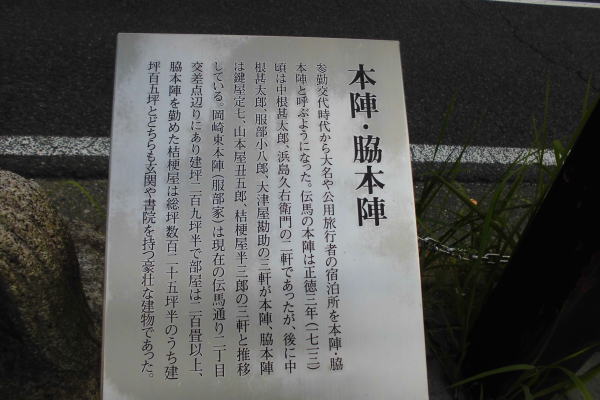 本陣・脇本陣
参勤交代時代から大名や公用旅行者の宿泊所を本陣・脇
本陣と呼ぶようになった。伝馬の本陣は正徳三年(一七一三)
頃は中根甚太郎、浜島久右衛門の二軒であったが、後に中
根甚太郎、服部小八郎、大津屋勘助の三軒が本陣、脇本陣
は鍵屋定七、山本屋丑五郎、桔梗屋半三郎の三軒と推移
している。岡崎東本陣(服部家)は現在の伝馬通り二丁目
交差点辺りにあり建坪二百九坪半で部屋は二百畳以上、
脇本陣を勤めた桔梗屋は総坪数百二十五坪半のうち建
坪百五坪とどちらも玄関や書院を持つ豪壮な建物であった。